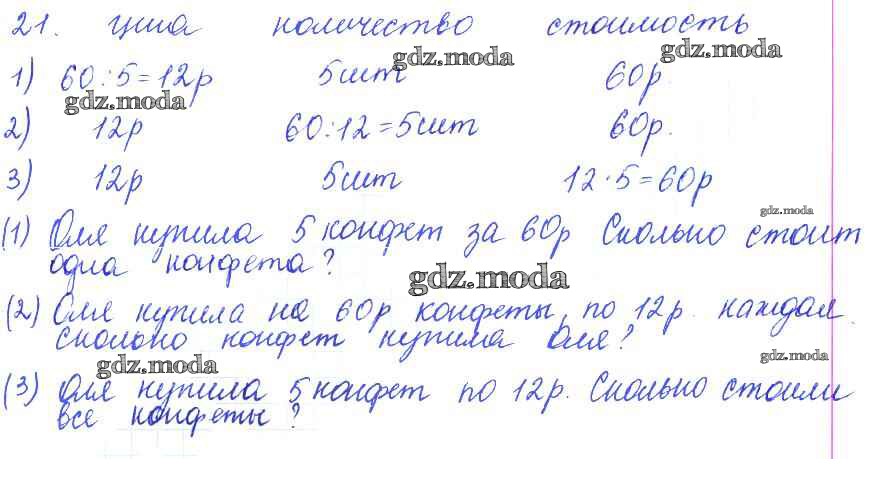 21. цена количество стоимость
gdz.moda gdz.moda
1) 60:5=12р 5шт 60р.
gdz.moda
2) 12р 60:12=5шт 60р.
3) 12р 5шт 12·5=60р
gdz.moda
(1) Оля купила 5 конфет за 60р Сколько стоит
одна конфета?
gdz.moda
(2) Оля купила на 60р конфеты по 12р. каждая.
Сколько конфет купила Оля?
gdz.moda gdz.moda
(3) Оля купила 5 конфет по 12р. Сколько стоили
все конфеты?